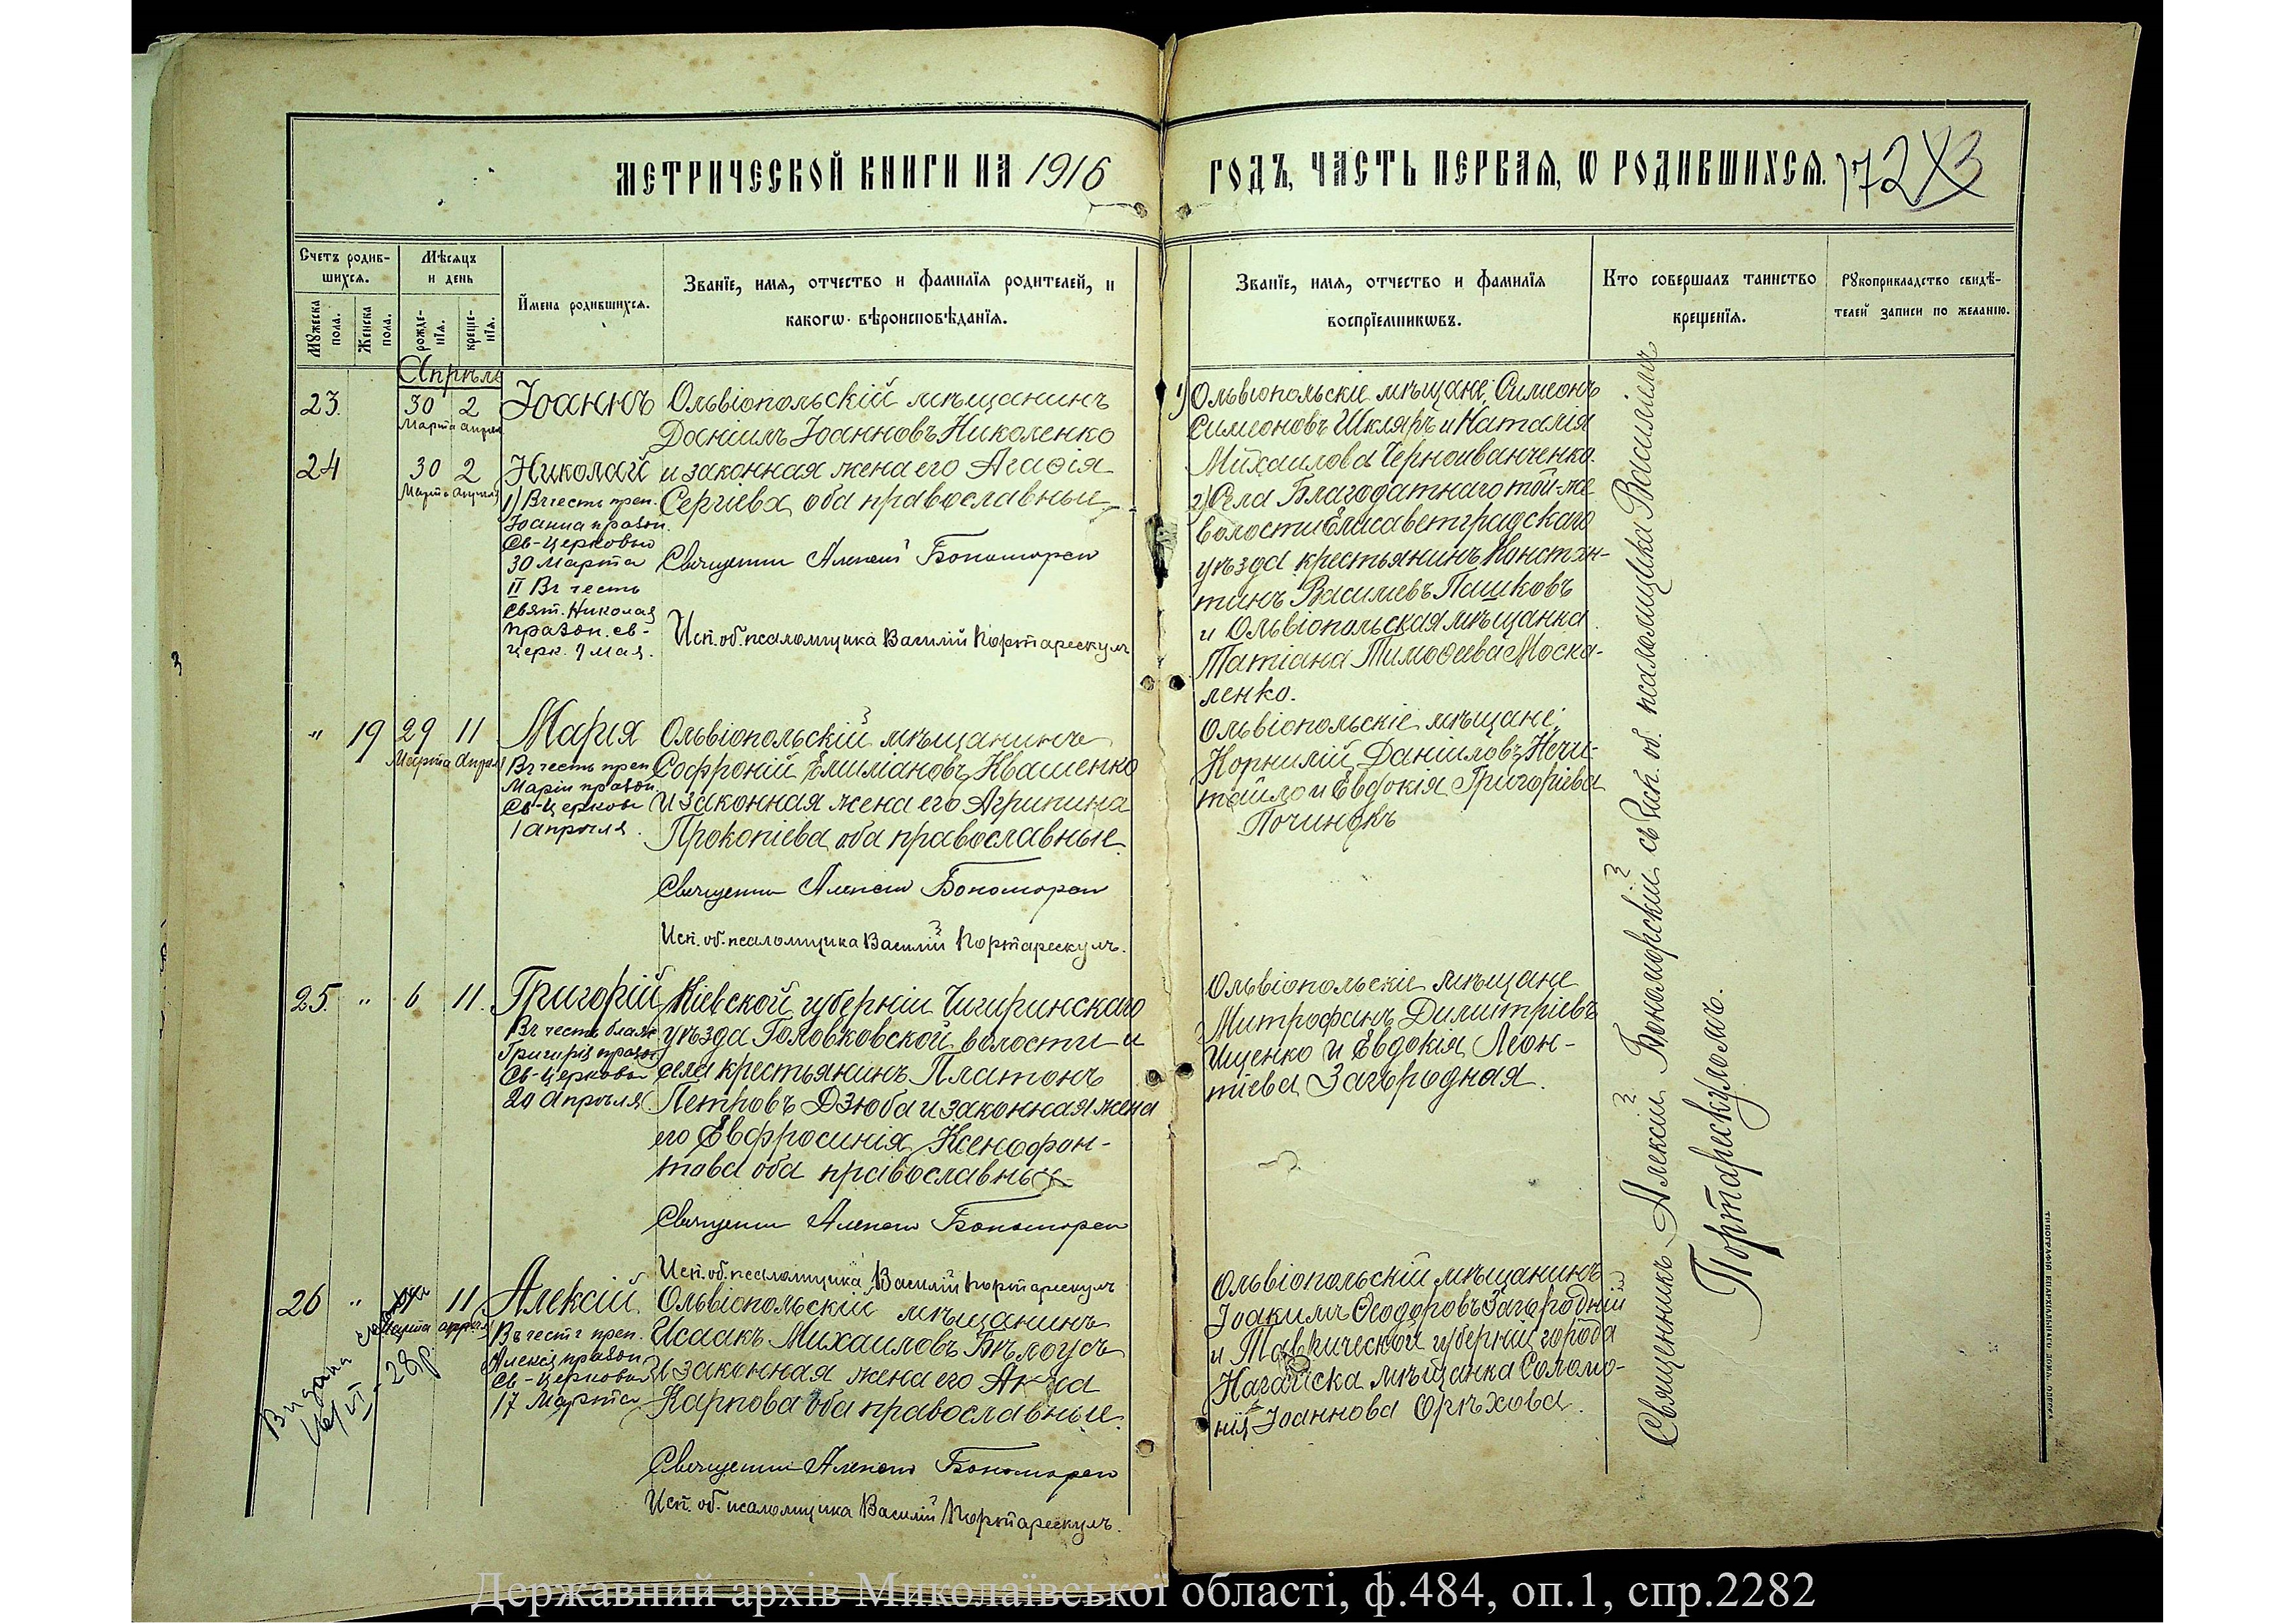 МЕТРИЧЕСКОЙ КНИГИ НА 1916
ГОДЪ, ЧАСТЬ ПЕРВАЯ, Ѡ РОДИВШИХСЯ.
172
Счетъ родив-
шихся.
Мѣсяцъ
и день
Мужеска
пола.
Женска
пола.
рожде-
нія.
креще-
нія.
Имена родившихся.
Званіе, имя, отчество и фамилія родителей, и
какогѡ вѣроисповѣданія.
Званіе, имя, отчество и фамилія
воспріемникѡвъ.
Кто совершалъ таинство
крещенія.
Рукоприкладство свидѣ-
телей записи по желанію.
Апрѣль
23.
30 2
Марта апрѣля
Іоаннъ
Ольвіопольскій мѣщанинъ
Даніилъ Іоанновъ Николенко
24
30 2
Марта апрѣля
Николай
и законная жена его Агафія
Сергіева, оба православные
1) Въ честь преп.
Іоанна праздн.
Св-Церковью
30 Марта
II Въ честь
Свят. Николая
праздн. св-
церк. 9 мая.
Священникъ Алексій Бономорскій
Исп. об. псаломщика Василій Портарескулъ
1) Ольвіопольскіе мѣщане, Симеонъ
Симеоновъ Шкляръ и Наталія
Михаилова Черноиванченко.
2) Села Благодатнаго той-же
волости Елисаветградскаго
уѣзда крестьянинъ Констан-
тинъ Василіевъ Пашковъ
и Ольвіопольская мѣщанка
Татіана Тимоѳеева Моска-
ленко.
" 19 29 11
Марта Апрѣля
Марія
Въ честь преп.
Маріи праздн.
Св-Церковью
1 апрѣля.
Ольвіопольскій мѣщанинъ
Софроній Емиліановъ Квашенко
и законная жена его Агрипина
Прокопіева, оба православные.
Священникъ Алексій Бономорскій
Исп. об. псаломщика Василій Портарескулъ.
Ольвіопольскіе мѣщане,
Корнилій Даніиловъ Нечи-
тайло и Евдокія Григоріева
Починокъ
25. " 6 11.
Григорій
Въ честь блаж.
Григорія праздн.
Св-Церковью
20 Апрѣля
Кіевской губерніи Чигиринскаго
уѣзда Головковской волости и
села крестьянинъ Платонъ
Петровъ Дзюба и законная жена
его Евфросинія Ксенофон-
това оба православные
Священникъ Алексій Бономорскій
Исп. об. псаломщика Василій Портарескулъ
Ольвіопольскіе мѣщане
Митрофанъ Димитріевъ
Ищенко и Евдокія Леон-
тіева Загородная.
26 " 11
Марта апрѣля
Алексій
Въ честь преп.
Алексія праздн.
Св-Церковью
17 Марта
Ольвіопольскій мѣщанинъ
Исаакъ Михаиловъ Бѣлоусъ
и законная жена его Анна
Карпова оба православные.
Священникъ Алексій Бономорскій
Исп. об. псаломщика Василій Портарескулъ.
Ольвіопольскій мѣщанинъ
Іоакимъ Ѳеодоровъ Загородній
и Таврической губерніи города
Нагайска мѣщанка Соломо-
нія Іоаннова Орѣхова.
Видана
28 р.
Священникъ Алексій Бономорскій съ исп. об. псаломщика Василіемъ
Портарескуломъ.
ТИПОГРАФІЯ ЕПАРХІАЛЬНАГО ДОМА. ОДЕССА
Державний архів Миколаївської області, ф.484, оп.1, спр.2282